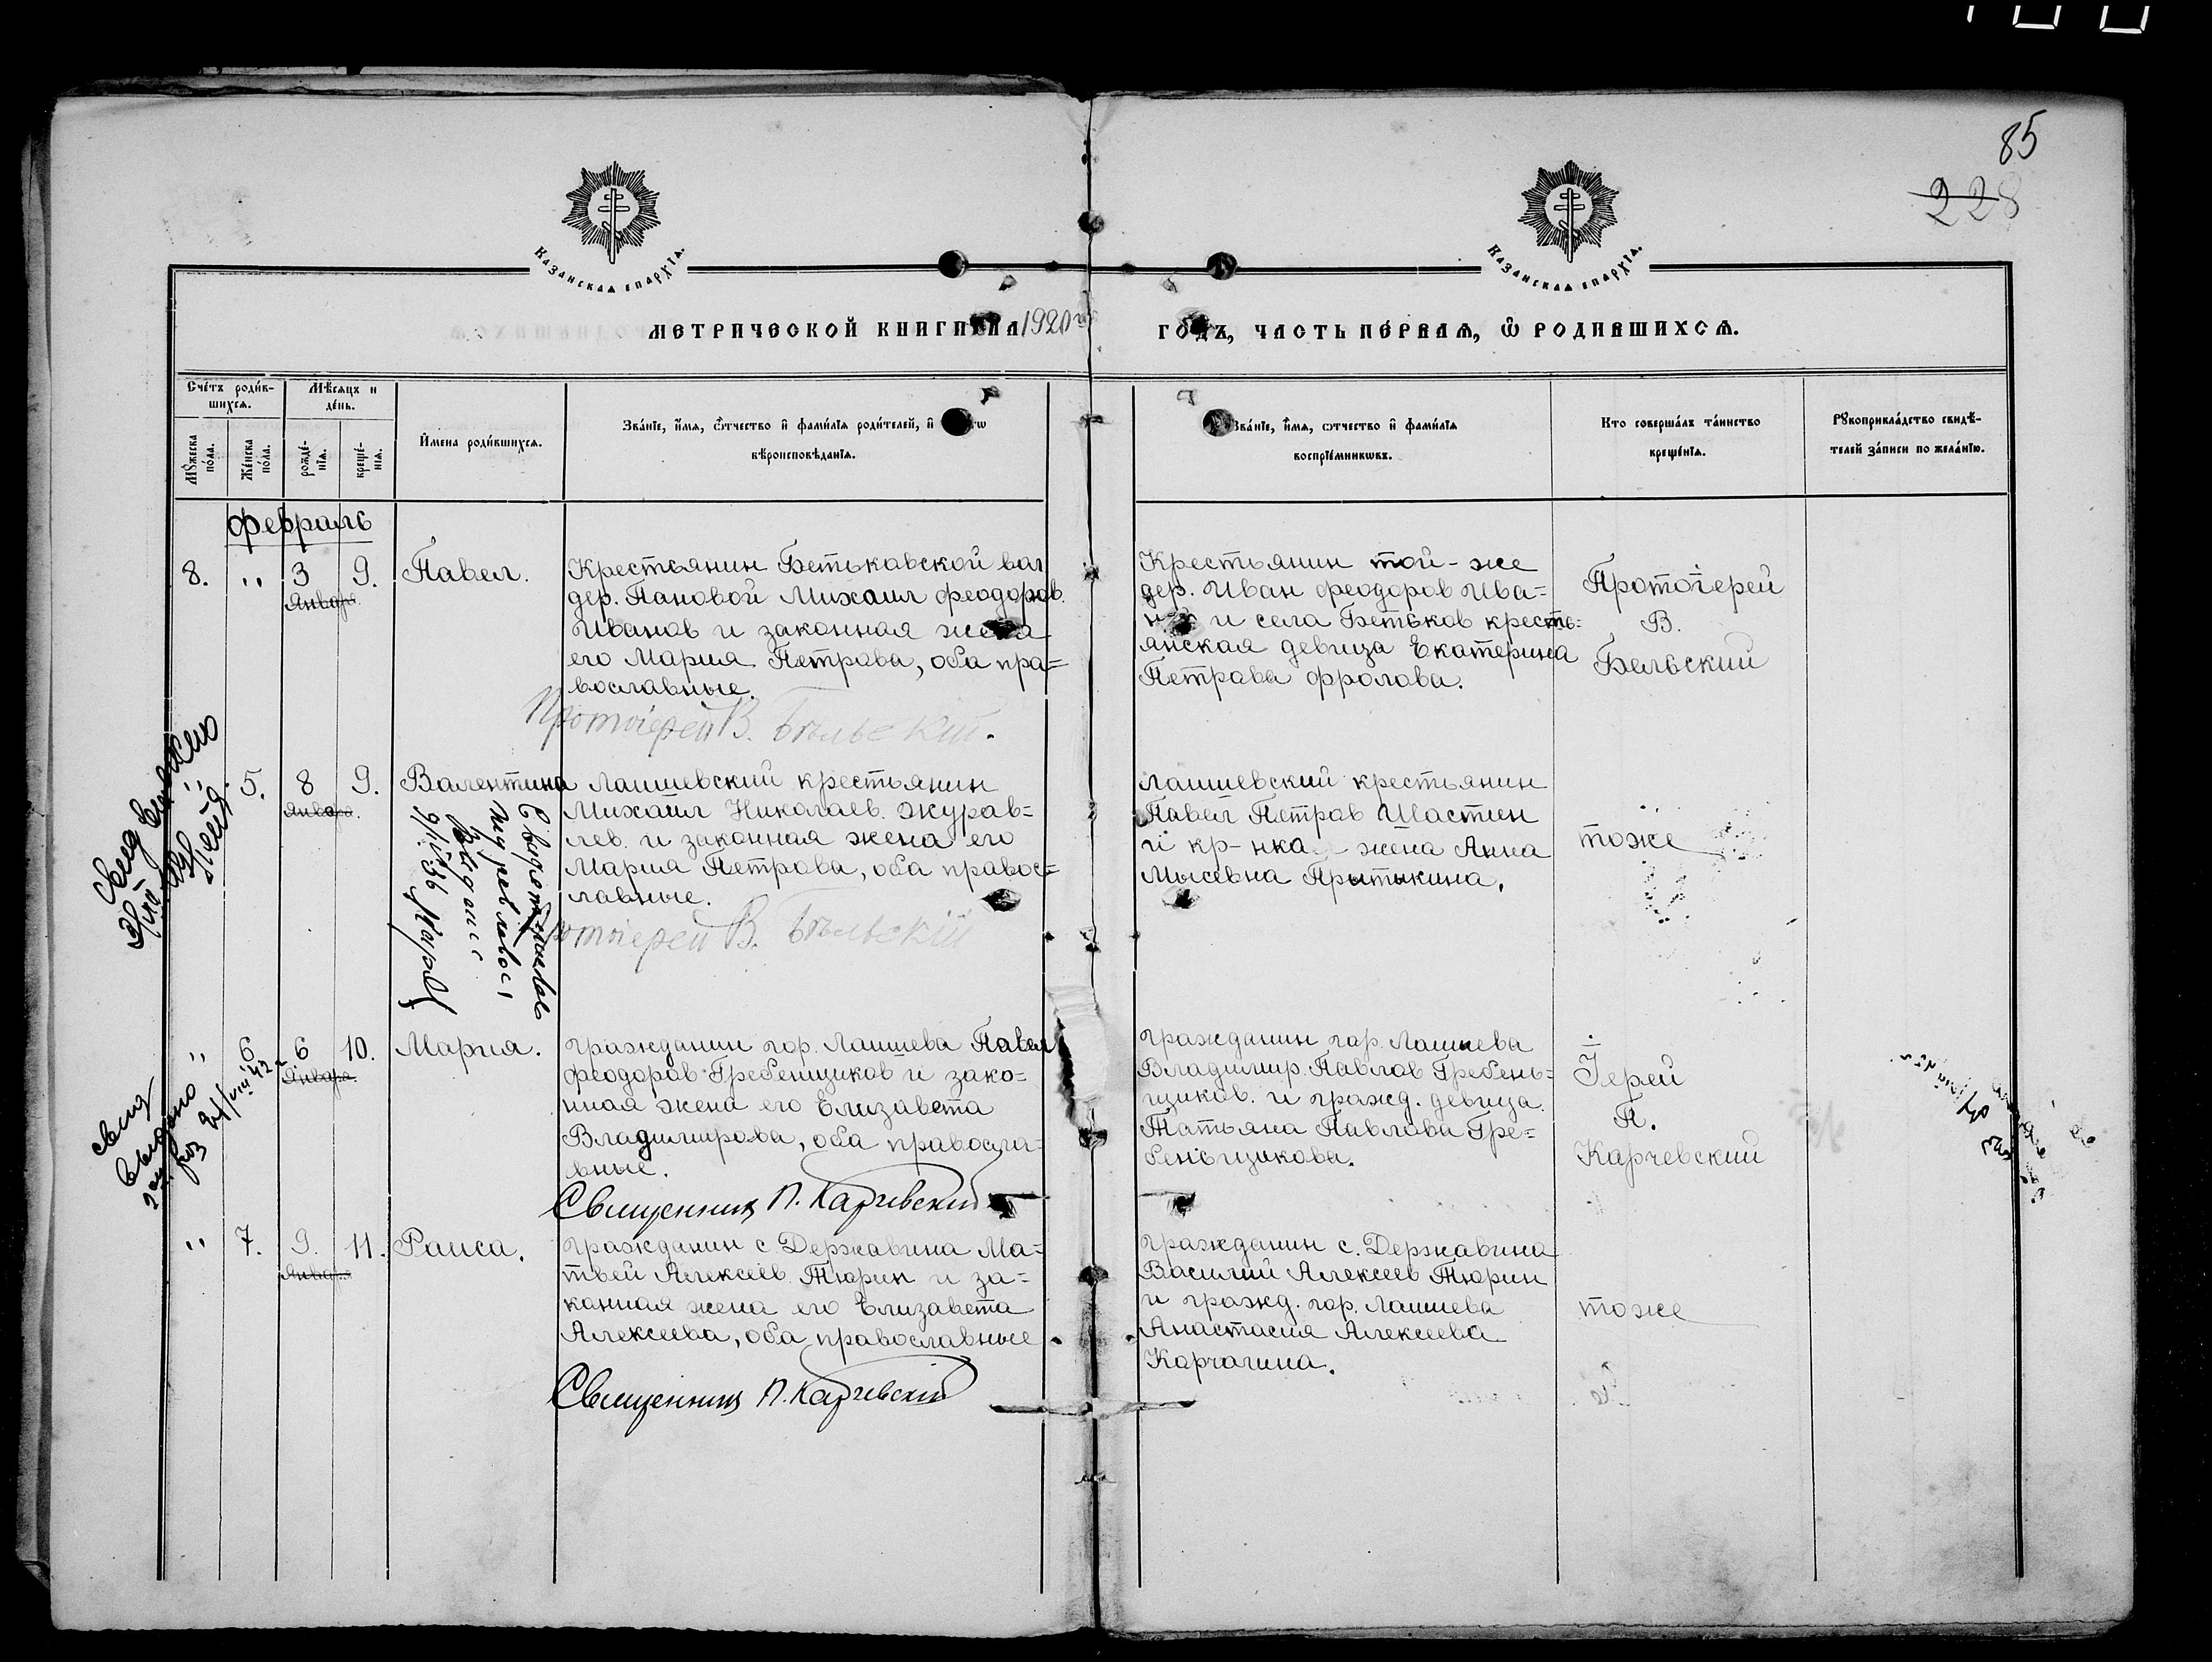 85
228
Казанская епархїя.
Казанская епархїя.
МЕТРИЧЕСКОЙ КНИГИ НА 1920
ГОДЪ, ЧАСТЬ ПЕРВАЯ, Ѽ РОДИВШИХСЯ.
Счетъ родив-
шихся.
Мѣсяцъ и
день.
Мꙋжеска
пола.
Женска
пола.
рожде-
нїя.
креще-
нїя.
Имена родившихся.
Званїе, имя, ѿчество и фамилїя родителей, и
вѣроисповѣданїя.
Званїе, имя, отчество и фамилїя
воспрїемникѡвъ.
Кто совершалъ таинство
крещенїя.
Рꙋкоприкладство свидѣ-
телей записи по желанїю.
Февраль
8. " 3 9. Павел.
Января.
Крестьянин Бетьковской вол
дер. Пановой Михаил Феодоров.
Иванов и законная жена
его Мария Петрова, оба пра=
вославные.
Протоіерей В. Бѣльскій.
Крестьянин той-же
дер. Иван Феодоров Ива=
и села Бетьков кресть=
янская девица Екатерина
Петрова Фролова.
Протоіерей
В.
Бельский
" 5. 8 9. Валентина
Января.
Лаишевский крестьянин
Михаил Николаев. Журав=
лев. и законная жена его
Мария Петрова, оба правос=
лавные.
Протоіерей В. Бѣльскій
Лаишевский крестьянин
Павел Петров Шастин
и кр-нка жена Анна
Мысевна Прытыкина.
тоже
" 6 6 10. Мария.
Января.
свид
выдано
Гражданин гор. Лаишева Павел
Феодоров Гребенщиков и зако=
нная жена его Елизавета
Владимирова, оба правосла=
вные.
Священник П. Карчевский
Гражданин гор. Лаишева
Владимир. Павлов Гребень=
щиков. и гражд. девица.
Татьяна Павлова Гре=
беньщикова.
Іерей
П.
Карчевский
" 7. 9. 11. Раиса.
Января
Гражданин с. Державина Ма=
твей Алексеев. Тюрин и за=
конная жена его Елизавета
Алексеева, оба православные
Священник П. Карчевский
Гражданин с. Державина
Василий Алексеев Тюрин
и гражд. гор. Лаишева
Анастасия Алексеева
Карчагина.
тоже